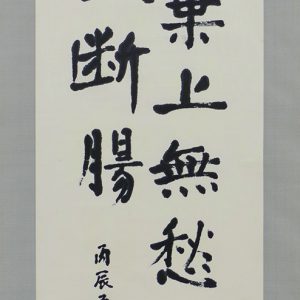 葉上無愁
斷腸
丙辰